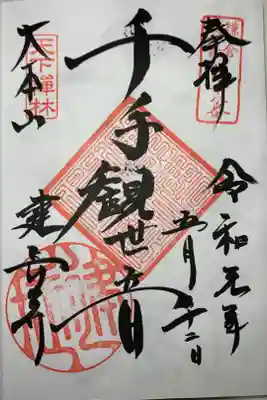 奉拝
令和元年
五月二十二日
千手観世音
大本山
建長寺
天下禅林